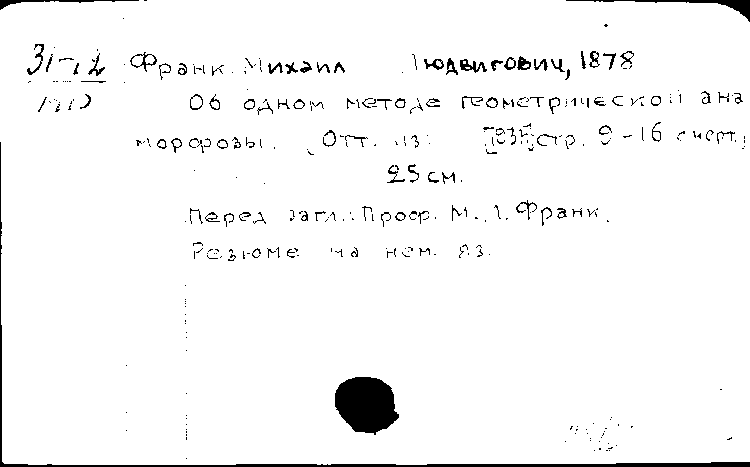 31-12 Франк Михаил Людвигович, 1878
Об одном методе геометрической ана
морфозы. Отт. из стр. 9-16 с черт.,
25 см.
Перед загл.: Проф. М. Л. Франк.
Резюме на нем. яз.